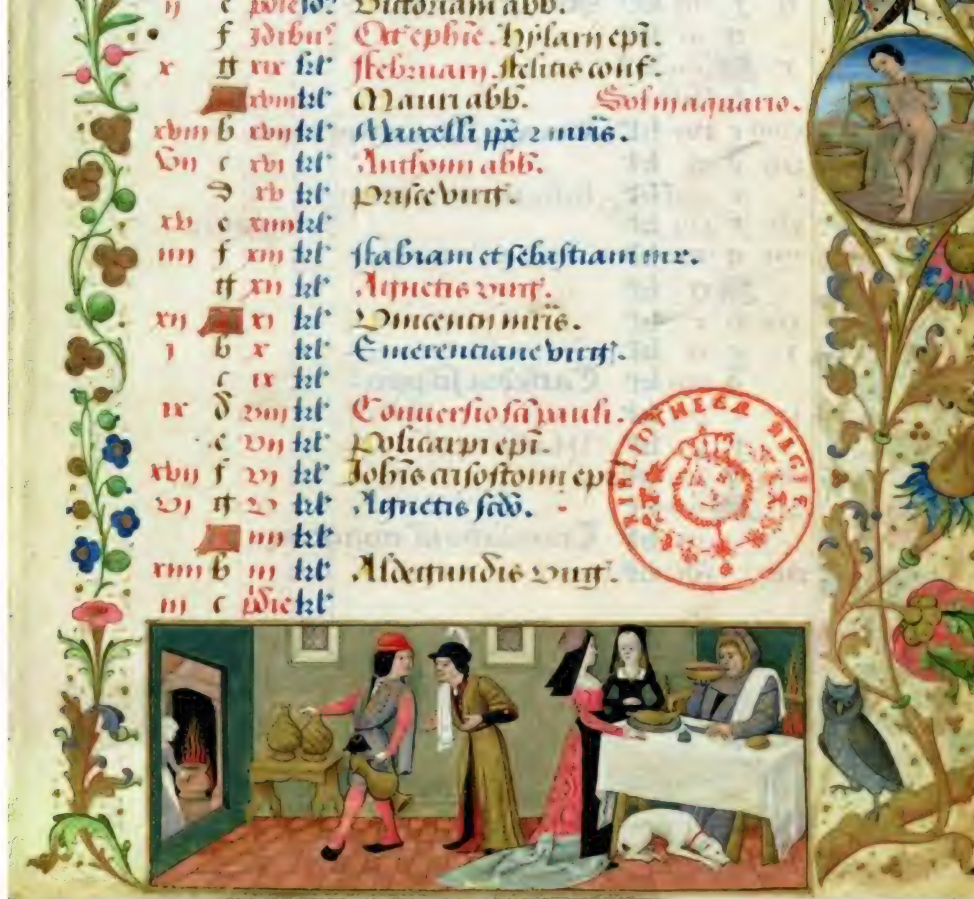 ij e pdie id9 Victoriani abb.
f Idibus Oct ephīe. hylarij epī.
x g xix kl' februarij. felicis conf.
xviij kl' Mauri abb. Sol in aquario.
xviij b xvij kl' Marcelli pp̄e z mr̄is.
vij c xvj kl' Anthonij abb.
d xv kl' Prisce virg.
xv e xiiij kl'
iiij f xiij kl' fabiani et sebastiani mr.
g xij kl' Agnetis virg.
xij xj kl' Vincentij mr̄is.
j b x kl' Emerenciane virg.
c ix kl'
ix d viij kl' Conuersio scī pauli.
e vij kl' Policarpi epī.
xvij f vj kl' Joh̄is crisostomi epī
vj g v kl' Agnetis scdo.
iiij kl'
xiiij b iij kl' Aldegundis virg.
iij c pdie kl'
BIBLIOTHECÆ REGIÆ